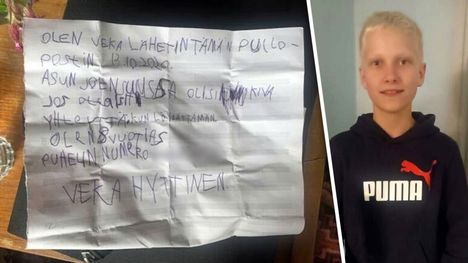 OLEN VEKA LÄHETIN TÄMÄN PULLO-
POSTIN
ASUN JOENSUUSSA OLISI KIVA
JOS
OLEN 8 VUOTIAS
PUHELIN NUMERO
VEKA HYTTINEN
PUMA